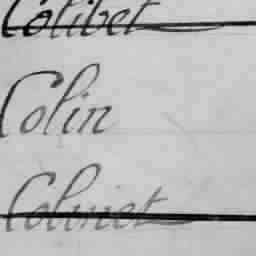 Colibet
Colin
Coliniet